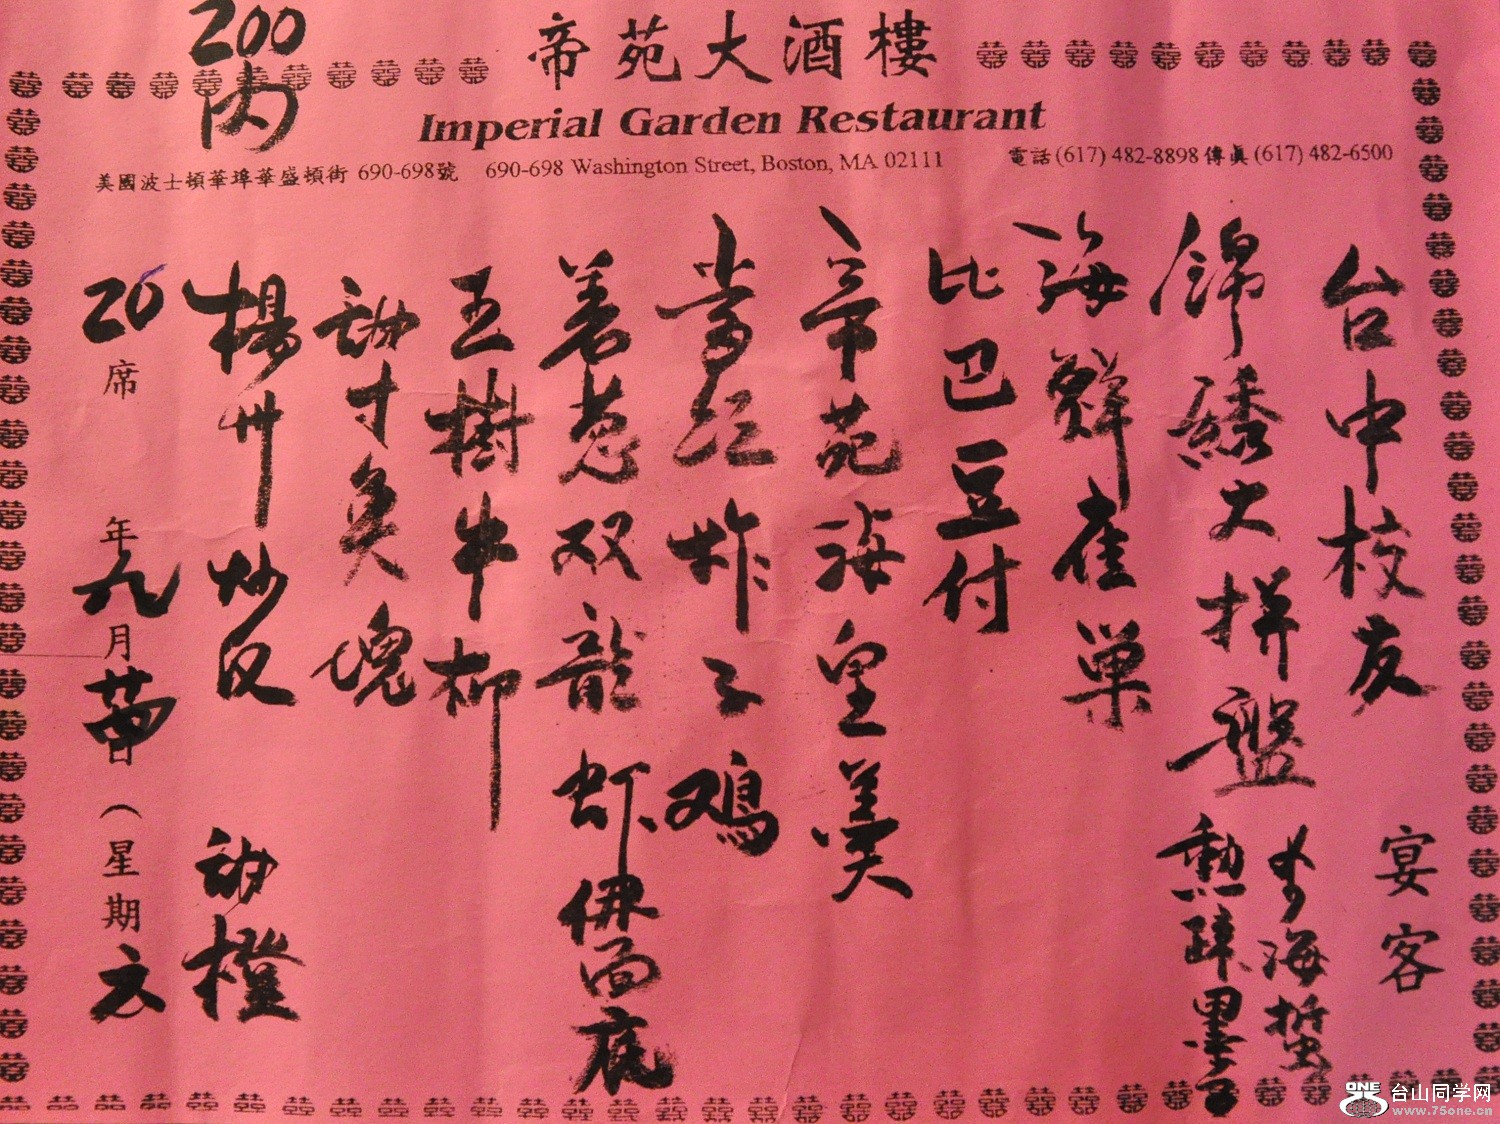 200
内
帝苑大酒樓
Imperial Garden Restaurant
美國波士頓華埠華盛頓街 690-698號 690-698 Washington Street, Boston, MA 02111 電話 (617) 482-8898 傳真 (617) 482-6500
台中校友 宴客
錦綉大拼盤
海蜇
勲蹄墨子
海鮮雀巢
比巴豆付
帝苑海皇羹
当红炸子鸡
姜葱双龍虾伊面底
玉樹牛柳
魚塊
楊卅炒反
橙
20席
年九月 日（星期六
ONE
台山同学网
www.75one.cn